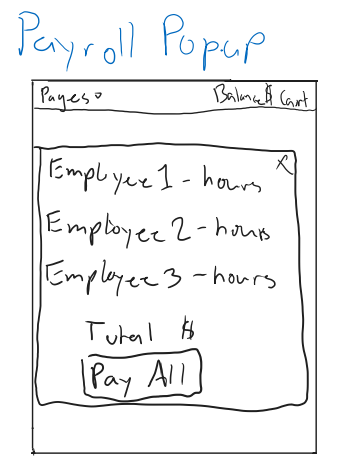 Payroll Popup
Pages
Balance $ Cart
x
Employee 1 - hours
Employee 2 - hours
Employee 3 - hours
Total $
Pay All